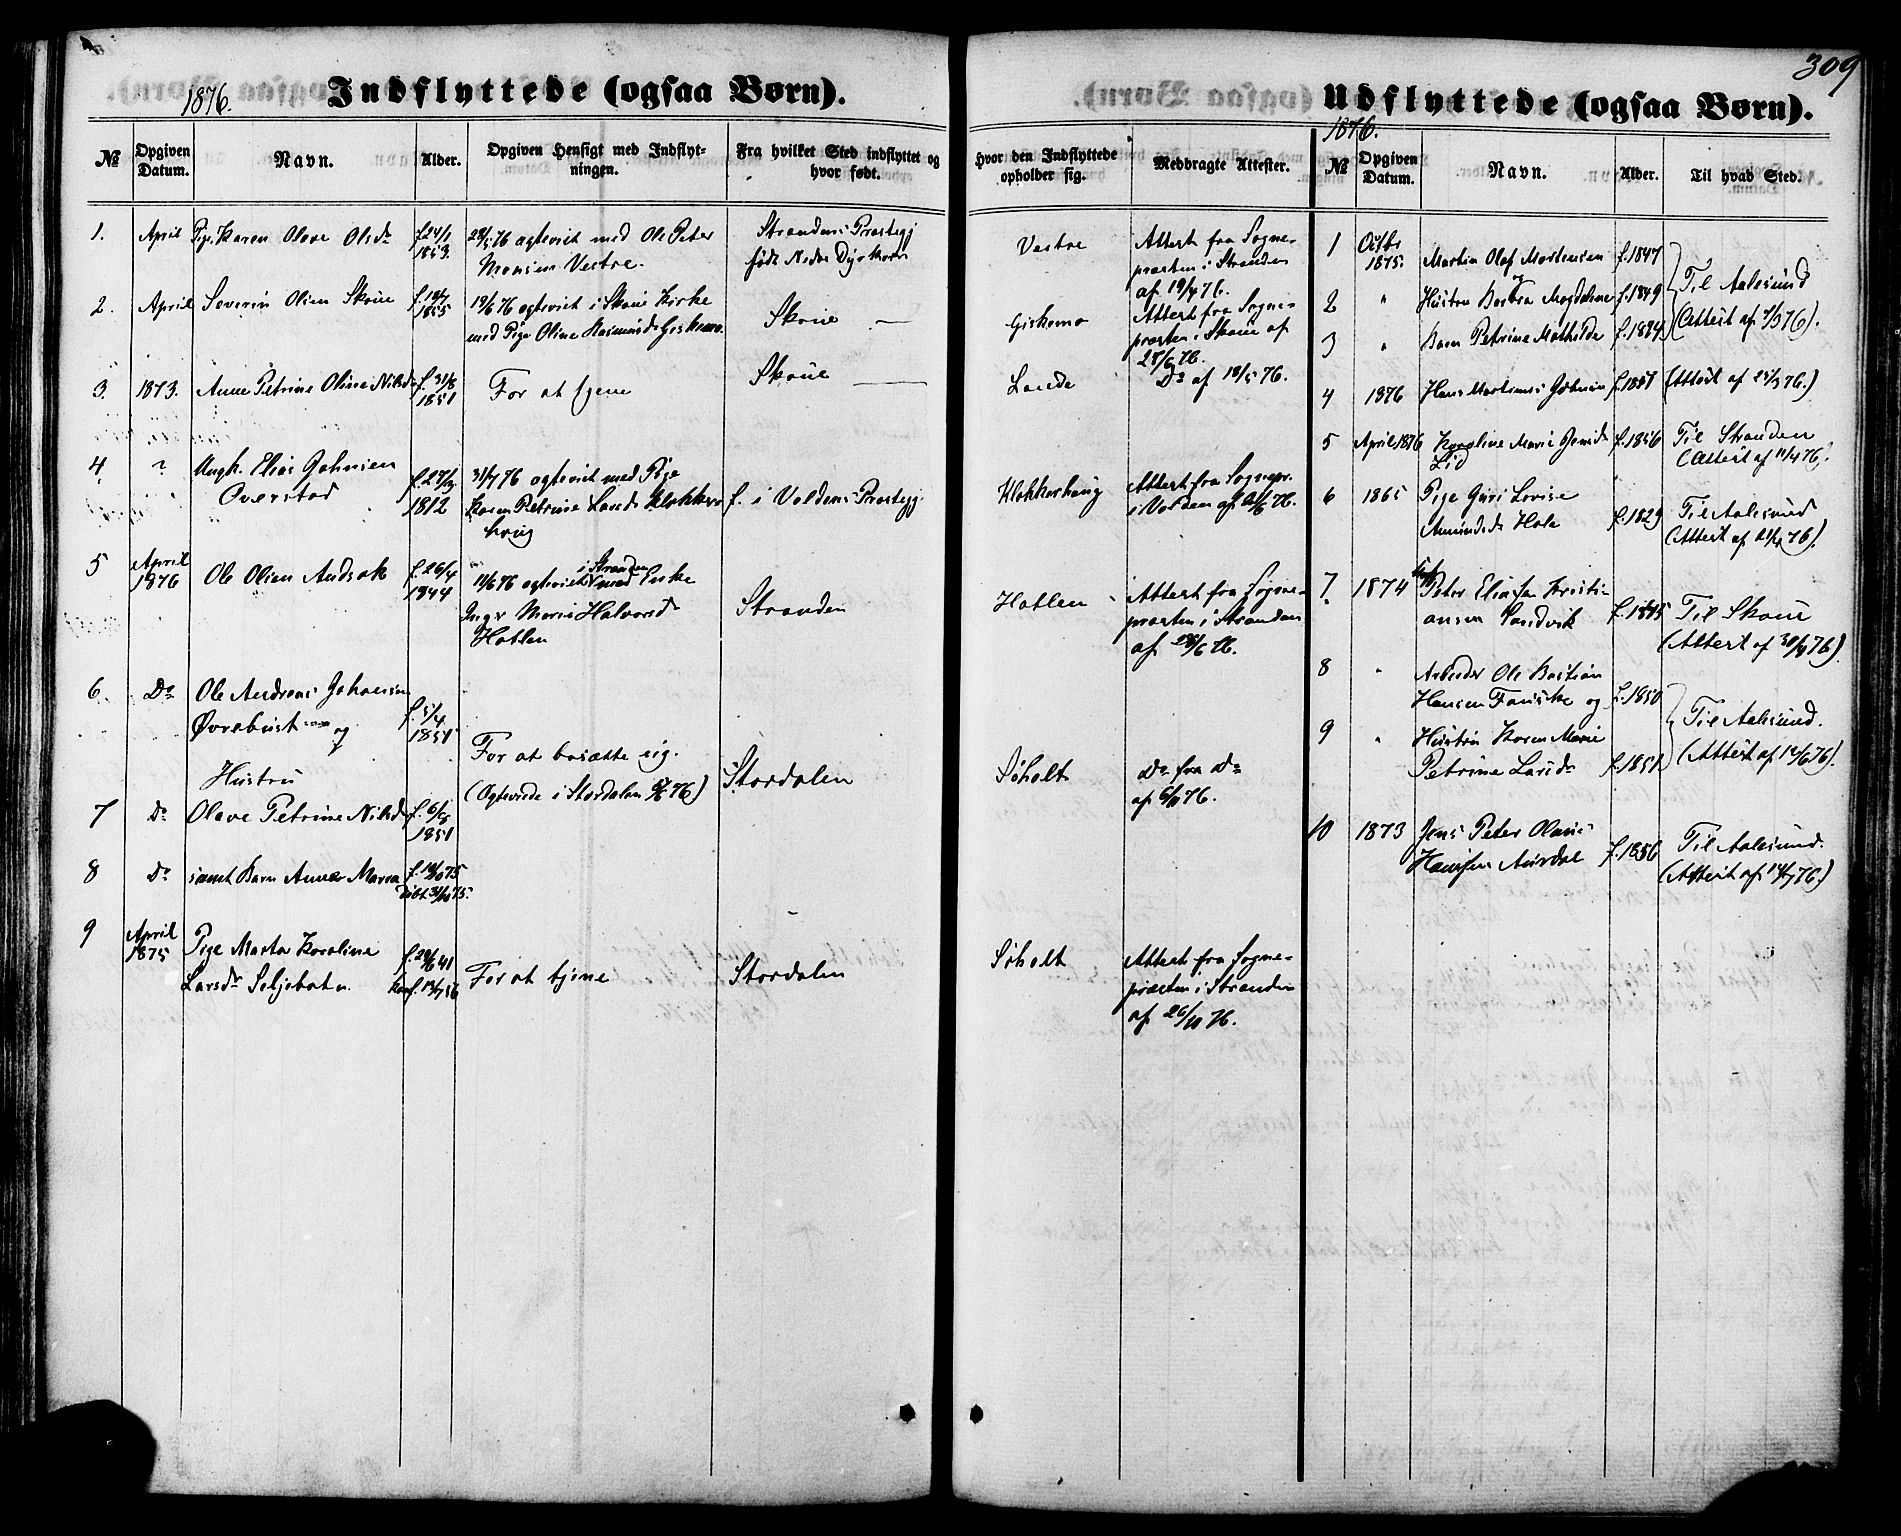 309
1876. Indflyttede (ogsaa Børn).
№
Opgiven Datum.
Navn.
Alder.
Opgiven Hensigt med Indflyt-
ningen.
Fra hvilket Sted indflyttet og
hvor født.
Hvor den Indflyttede
opholder sig.
Medbragte Attester.
1. April Pige Karen Olave Olsdr f. 24/1 1853.
28/5 76 ægteviet med Ole Peter
Monsen Vestre.
Strandens Præstegj
født Nedre
Vestre
Attest fra Sogne-
præsten i Stranden
af 19/4 76.
2. April Severin Olsen Skoue 1855
19/6 76 ægteviet i Skoue Kirke
med Pige Oline Rasmusdr Giskemo.
Skoue —
Giskemo
Attest fra Sogne-
præsten i Skoue af
28/6 76.
3. 1873. Anne Petrine Oline Nilsdr f. 31/8 1851
For at tjene
Skoue —
Lande
Do af 18/5 76.
4 ? Ungk. Elias Johnsen
Overstad
f. 27/3 1812
31/7 76 ægteviet med Pige
Karen Petrine Larsdr Klokker
houg
f. i Voldens Præstegj
Klokkerhoug
Attest fra Sognepr.
i Volden af 76.
5 April 1876 Ole Olsen f. 26/4 1844
11/6 76 ægteviet i Stranden med Enke
Inger Marie Halvorsdr
Hatlen
Stranden
Hatlen
Attest fra Sogne-
præsten i Stranden
af 28/6 76.
6. Do Ole Andreas Johansen
Øvrebust og
f. 5/4 1851
Hustru
For at bosætte sig.
(Ægteviede i Stordalen 76)
Stordalen
Søholt
Do fra Do
af 76.
7 Do Olave Petrine Nilsdr 1851
8 Do samt Barn Anne Marta
døbt 31/10 75.
9 April 1875 Pige Marta Karoline
Larsdr Seljebotn. f. 41
konf. 56
For at tjene
Stordalen
Søholt
Attest fra Sogne-
præsten i Stranden
af 26/10 76.
Udflyttede (ogsaa Børn).
1876.
№
Opgiven Datum.
Navn.
Alder.
Til hvad Sted.
1 Octbr 1875. Martin Olaf Mortensen f. 1847
og
2 " Hustru Magdalene f. 1849 Til Aalesund
3 " Barn Petrine Mathilde f. 1874
4 1876 Hans Martinus f. 1857 (Attest af 76.)
5 April 1876 Karoline Marie Jensdr f. 1856 Til Stranden
Lid (Attest af 11/4 76).
6 1865 Pige Guri Lovise
Amundsdr Hole f. 1829 Til Aalesund
(Attest af 76).
7. 1874 Peter Elias Kristi-
ansen Sandvik f. 1845 Til Skoue
(Attest af 76).
8 " Arbeider Ole Bastian
Hansen Fauske og f. 1850
9 " Hustru Karen Marie
Petrine Larsdr f. 1851 Til Aalesund.
(Attest af 14/6 76).
10 1873 Jens Peter Olaus
Hansen Aursdal f. 1856 Til Aalesund.
(Attest af 76.)